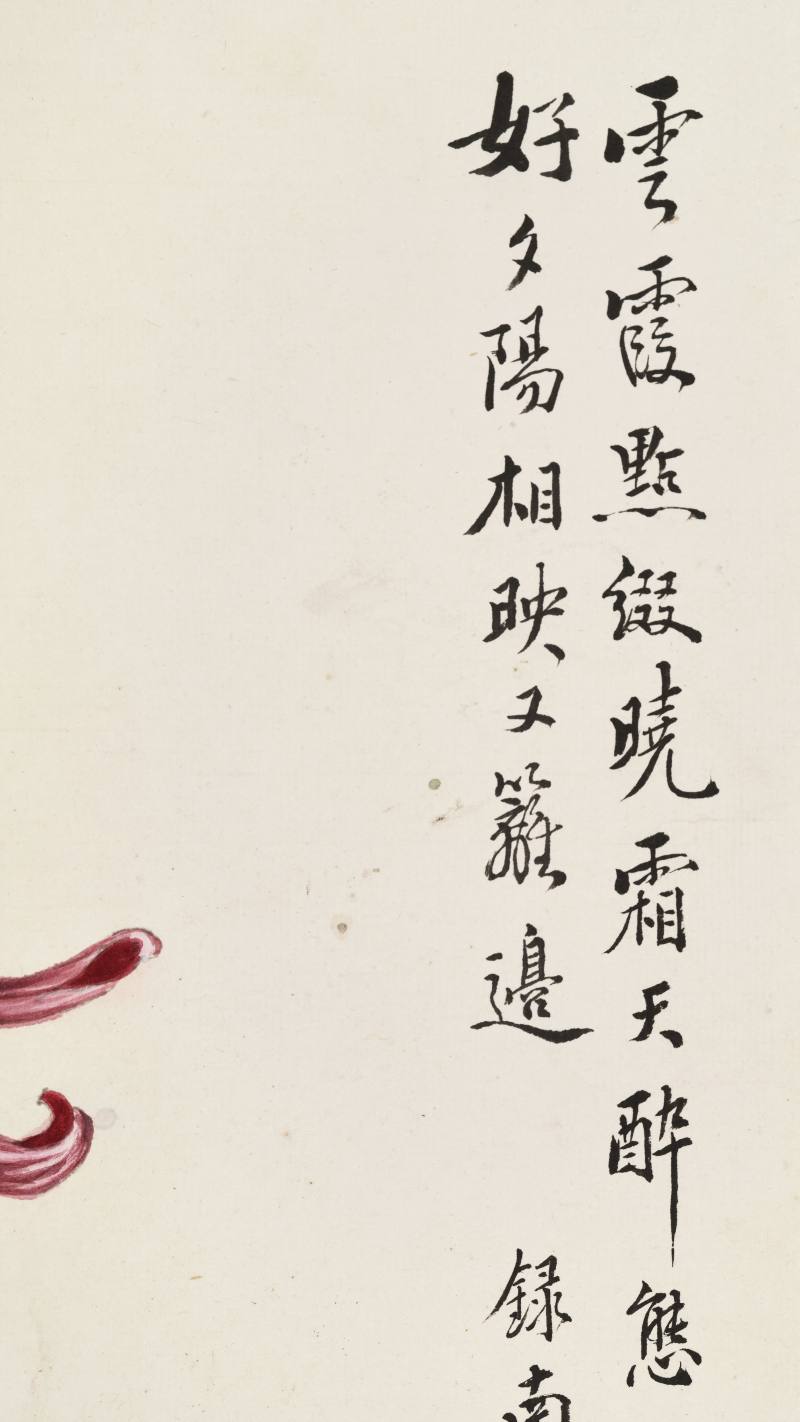 雲霞點綴曉霜天醉態
好夕陽相映又籬邊 録南